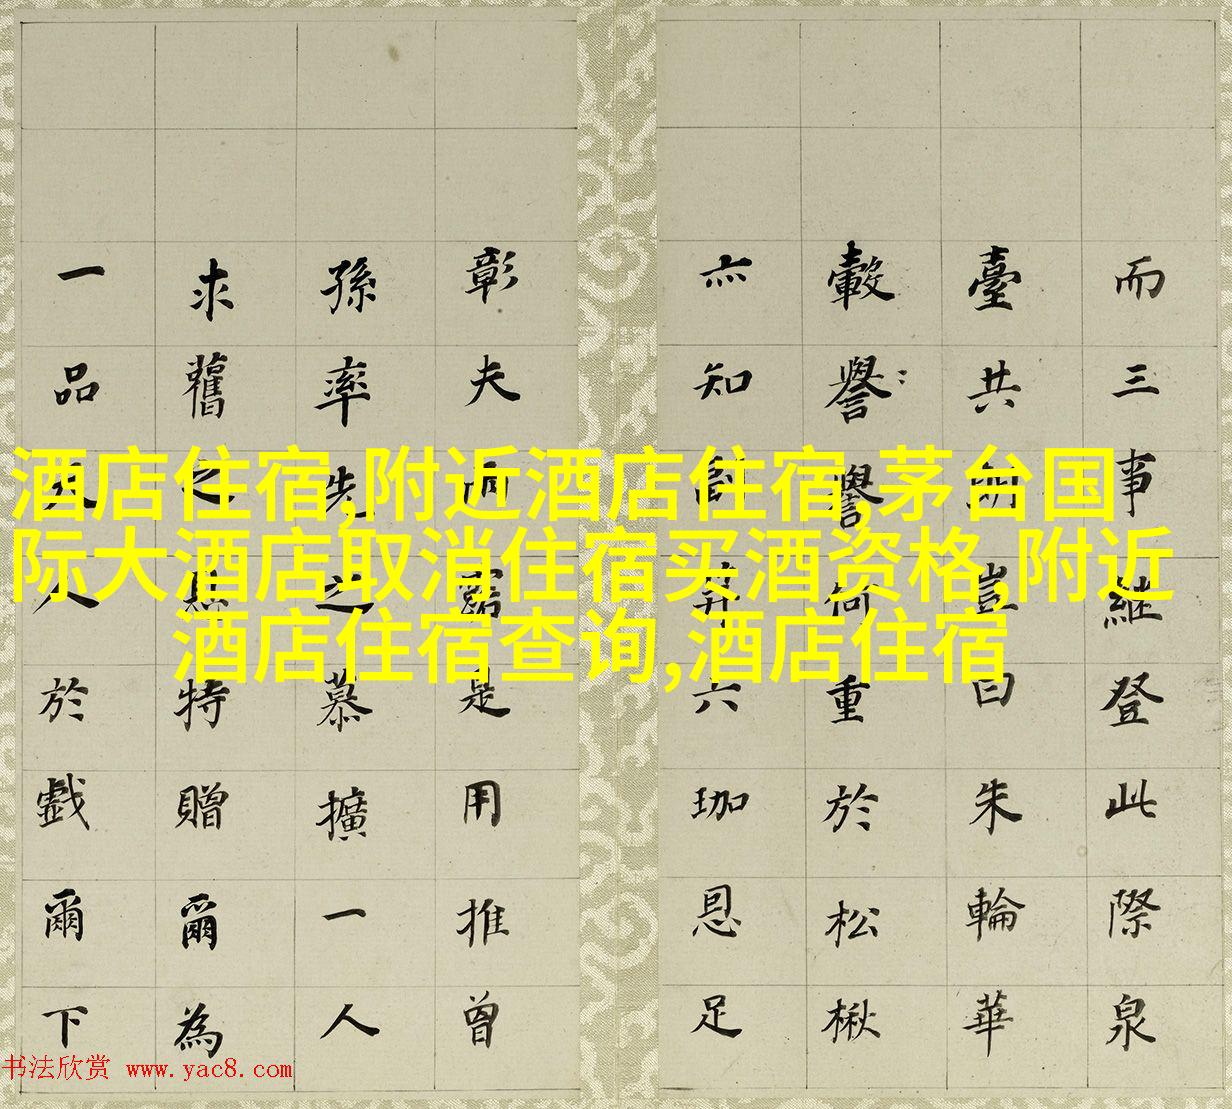 而三事継登此際泉
臺共豈曰朱輪華
轂譽譽何重於松楸
亦知副笄六珈恩足
彰夫雨露是用推曾
孫率先之慕擴一人
求舊之恩特贈爾為
一品夫人於戲爾下
酒店住宿,附近酒店住宿,茅台国
际大酒店取消住宿买酒资格,附近
酒店住宿查询,酒店住宿
书法欣赏 www.yac8.com